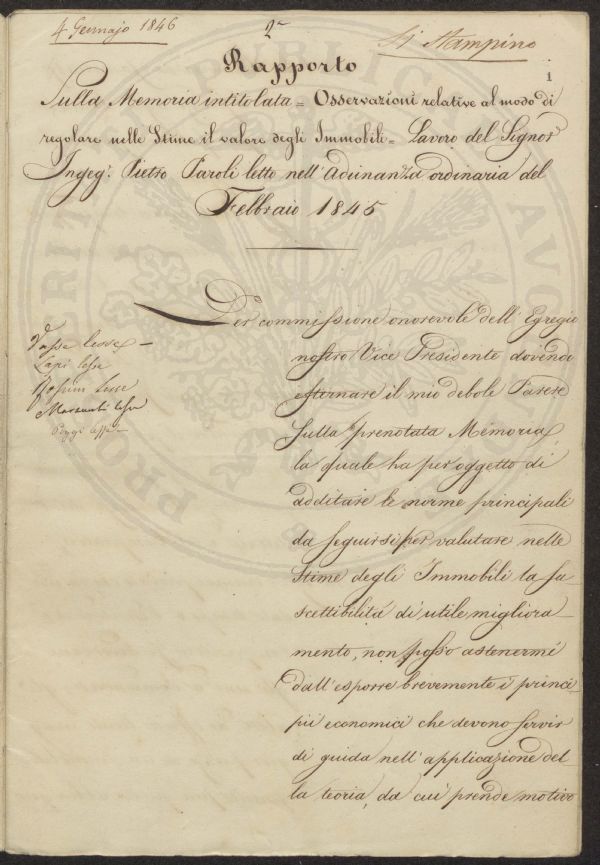 4 Gennajo 1846
2°
Si Stampino
1
Rapporto
Sulla Memoria intitolata = Osservazioni relative al modo di
regolare nelle Stime il valore degli Immobili = Lavoro del Signor
Ingeg.r Pietro Paroli letto nell'Adunanza ordinaria del
Febbraio 1845
Per commissione onorevole dell'Egregio
nostro Vice Presidente dovendo
esternare il mio debole Parere
sulla prenotata Memoria,
la quale ha per oggetto di
additare le norme principali
da seguirsi per valutare nelle
Stime degli Immobili la su
scettibilità di utile migliora_
mento, non posso astenermi
dall'esporre brevemente i princi
pii economici che devono servir
di guida nell'applicazione del
la teoria, da cui prende motivo
lesse
Lapi lesse
lesse
lesse
Poggi lesse